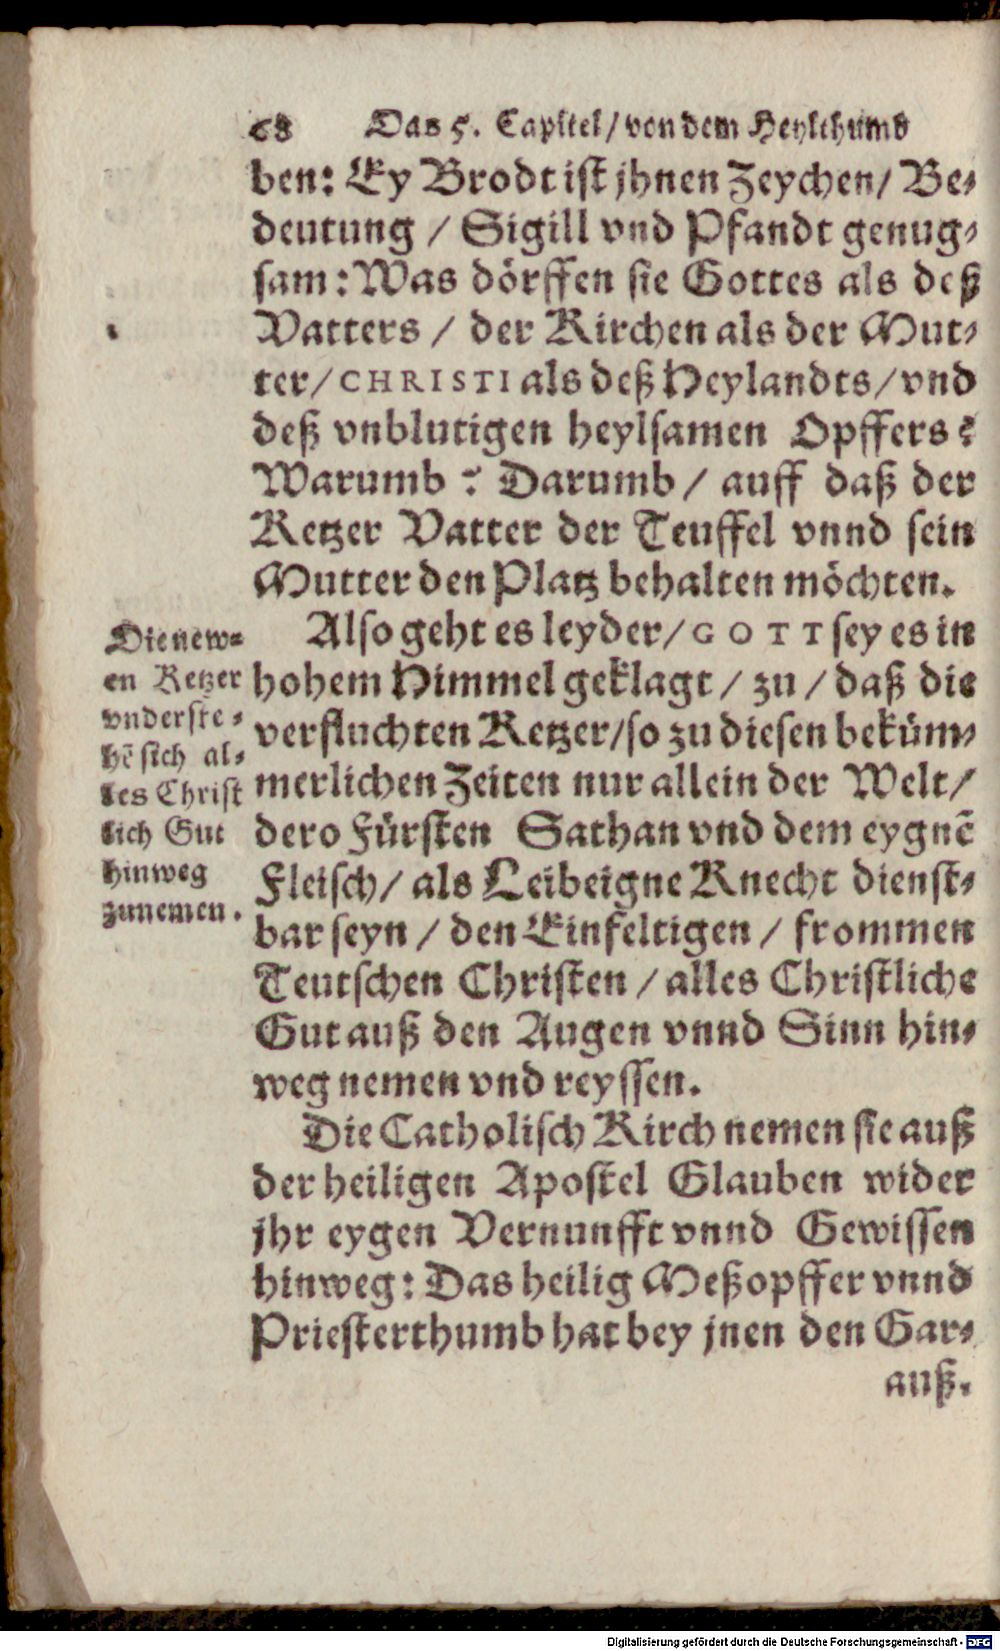 68 Das 5. Capitel/von dem Heylthumb
ben: Ey Brodt ist jhnen Zeychen/ Be-
deutung / Sigill vnd Pfandt genug-
sam: Was dörffen sie Gottes als deß
Vatters / der Kirchen als der Mut-
ter/ CHRISTI als deß Heylandts/ vnd
deß vnblutigen heylsamen Opffers?
Warumb? Darumb / auff daß der
Ketzer Vatter der Teuffel vnnd sein
Mutter den Platz behalten möchten.
Also geht es leyder/ GOTT sey es in
hohem Himmel geklagt / zu / daß die
verfluchten Ketzer/so zu diesen beküm-
merlichen Zeiten nur allein der Welt/
dero Fürsten Sathan vnd dem eygnẽ
Fleisch/ als Leibeigne Knecht dienst-
bar seyn / den Einfeltigen / frommen
Teutschen Christen / alles Christliche
Gut auß den Augen vnnd Sinn hin-
weg nemen vnd reyssen.
Die new-
en Ketzer
vnderste-
hẽ sich al-
les Christ
lich Gut
hinweg
zunemen.
Die Catholisch Kirch nemen sie auß
der heiligen Apostel Glauben wider
jhr eygen Vernunfft vnnd Gewissen
hinweg: Das heilig Meßopffer vnnd
Priesterthumb hat bey jnen den Gar-
auß.
Digitalisierung gefördert durch die Deutsche Forschungsgemeinschaft - DFG